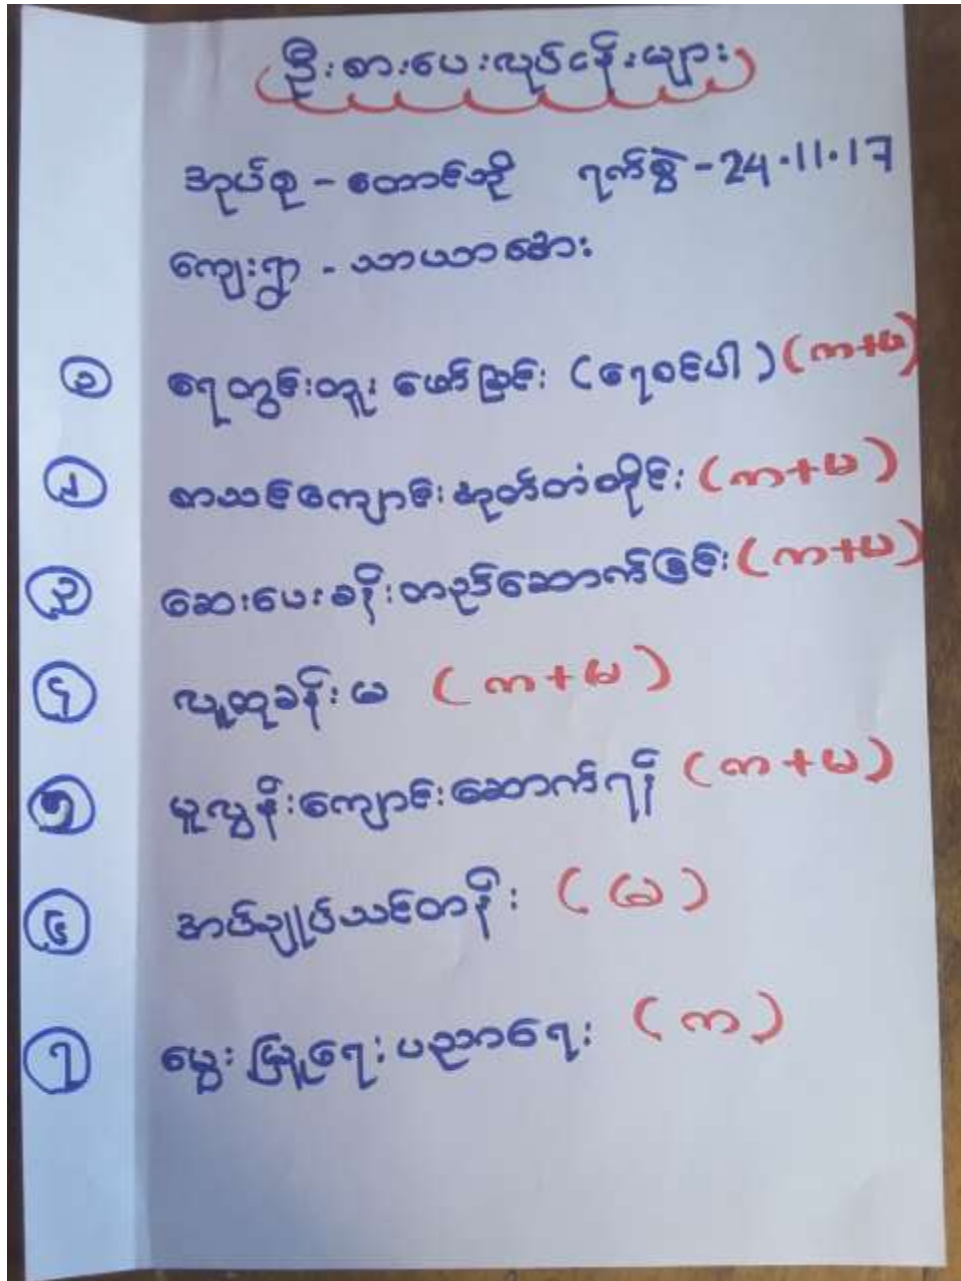 ဦးစားပေးလုပ်ငန်းများ
အုပ်စု - တောင်ဘို ရက်စွဲ - 24.11.17
ကျေးရွာ - သာယာအေး
၁ ရေတွင်းတူးဖော်ခြင်း (ရေစင်ပါ) (က+မ)
၂ စာသင်ကျောင်းအုတ်တံတိုင်း (က+မ)
၃ ဆေးပေးခန်းတည်ဆောက်ခြင်း (က+မ)
၄ လူထုခန်းမ (က+မ)
၅ မူလွန်းကျောင်းဆောက်ရန် (က+မ)
၆ အပ်ချုပ်သင်တန်း (မ)
၇ မွေးမြူရေးပညာရေး (က)